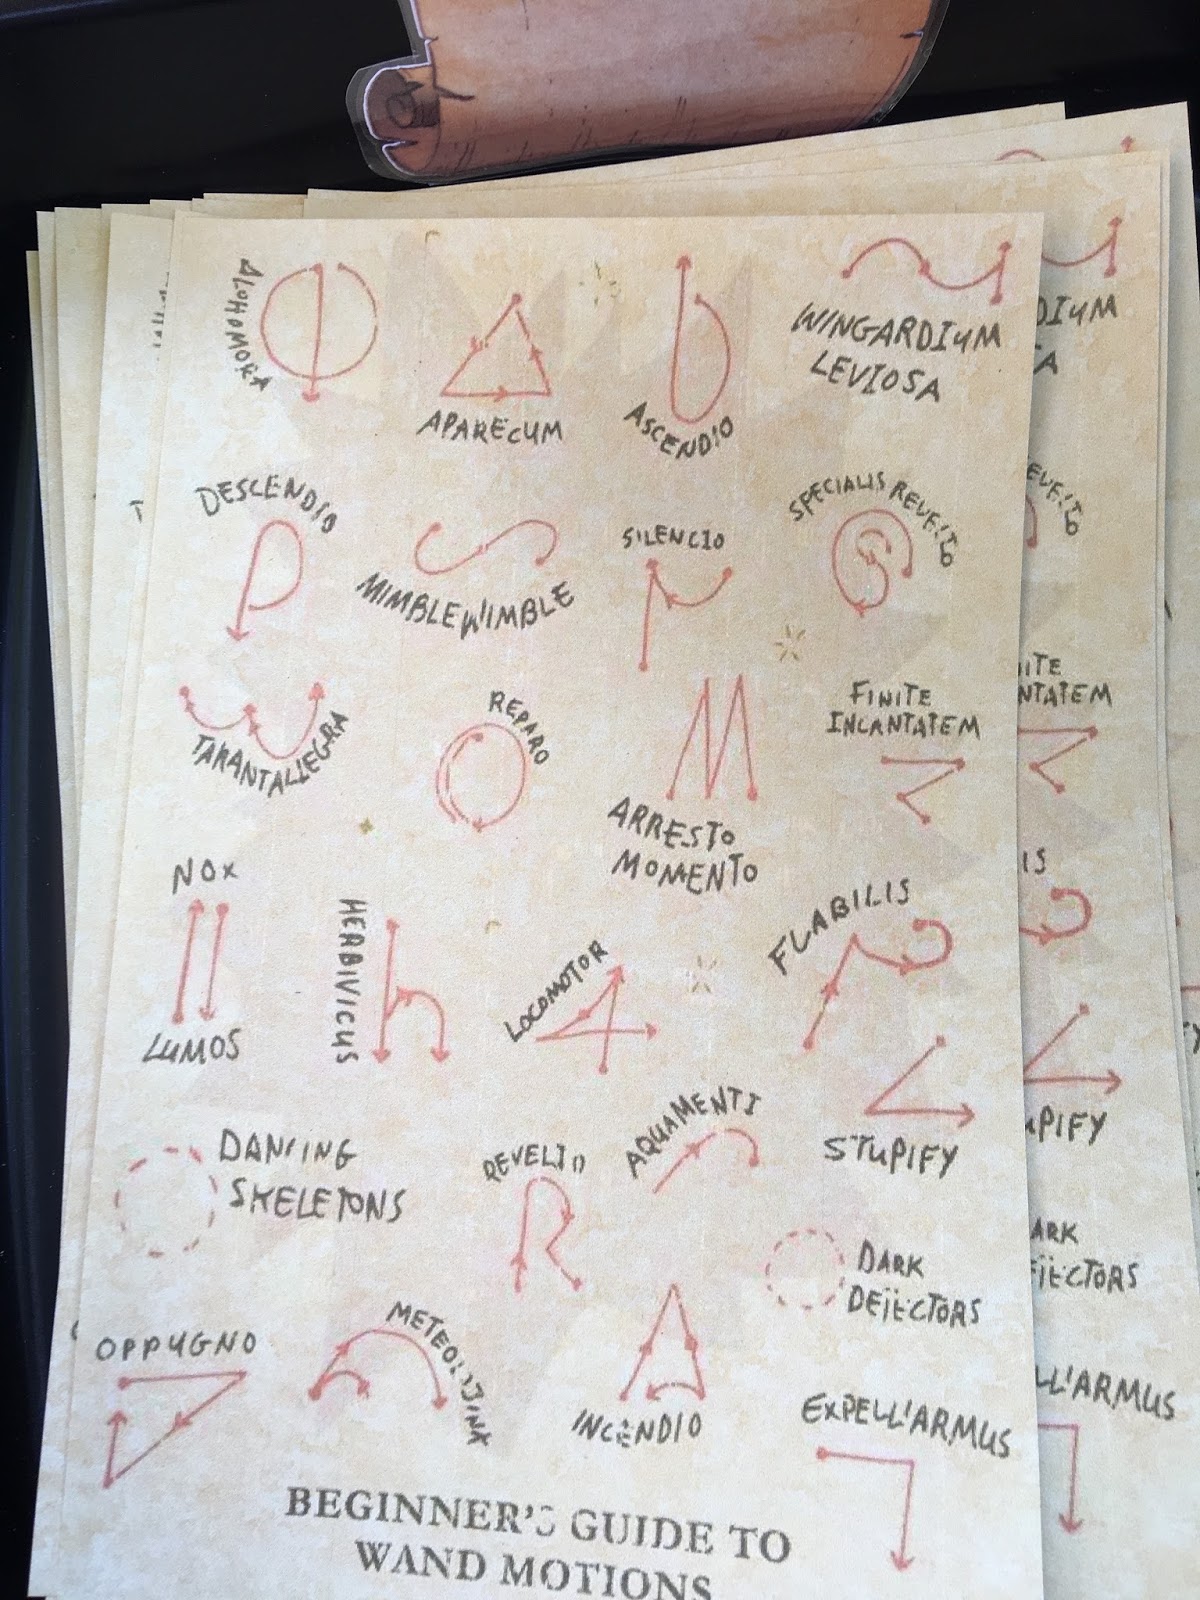 ALOHOMORA
APARECUM
ASCENDIO
WINGARDIUM
LEVIOSA
DESCENDIO
MIMBLEWIMBLE
SILENCIO
SPECIALIS REVELIO
TARANTALLEGRA
REPARO
ARRESTO
MOMENTO
FINITE
INCANTATEM
NOX
LUMOS
HERBIVICUS
LOCOMOTOR
FLABILIS
STUPIFY
DANCING
SKELETONS
REVELIO
AQUAMENTI
DARK
DETECTORS
OPPUGNO
METEOLOJINX
INCENDIO
EXPELLIARMUS
BEGINNER'S GUIDE TO
WAND MOTIONS
DIUM
TA
REVELIO
NITE
NTATEM
IS
UPIFY
ARK
TECTORS
LLIARMUS